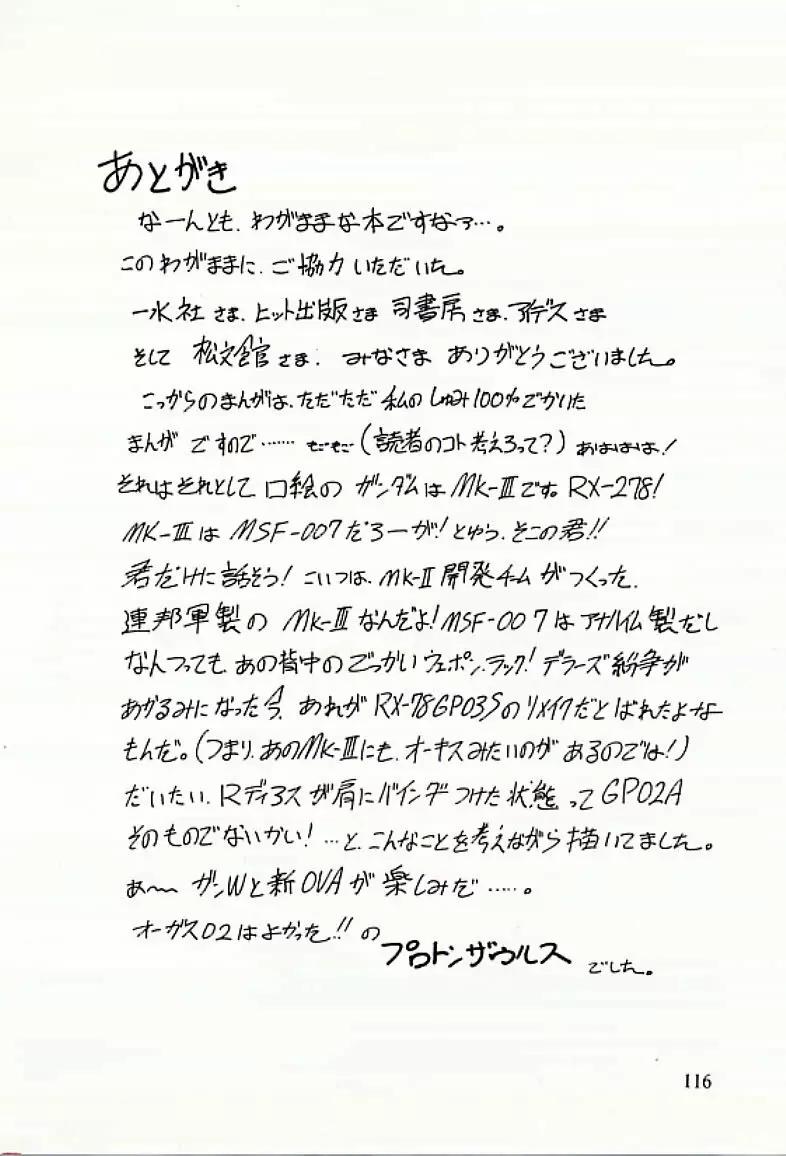 あとがき
なーんとも、わがままな本ですなァ…。
このわがままに、ご協力いただいた。
一水社さま、ヒット出版さま 司書房さま、アイデスさま
そして 松文館さま、みなさま ありがとうございました。
こっからのまんがは、ただただ 私の しゅみ100%でかいた
まんが ですので…… もごもご(読者のコト考えろって?) あははは!
それはそれとして 口絵の ガンダムは Mk-Ⅲです。RX-278!
MK-Ⅲは MSF-007だろーが!とゆう、そこの君!!
君だけに話そう! こいつは、MK-Ⅱ 開発チームがつくった、
連邦軍製の Mk-Ⅲなんだよ!MSF-007は アナハイム製だし
なんつっても、あの背中のごっかいウェポン、ラック! デラーズ紛争が
あかるみになった今、あれが RX-78GP03Sの リメイクだと ばれたよーな
もんだ。(つまり、あのMk-Ⅲにも、オーキスみたいのが あるのでは!)
だいたい、Rディアスが肩にバインダーつけた状態って GP02A
そのものでないかい! …と、こんなことを考えながら描いてました。
あ〜 ガンWと新OVAが 楽しみだ……。
オーガス02はよかった!! の
プロトンザウルス でした。
116